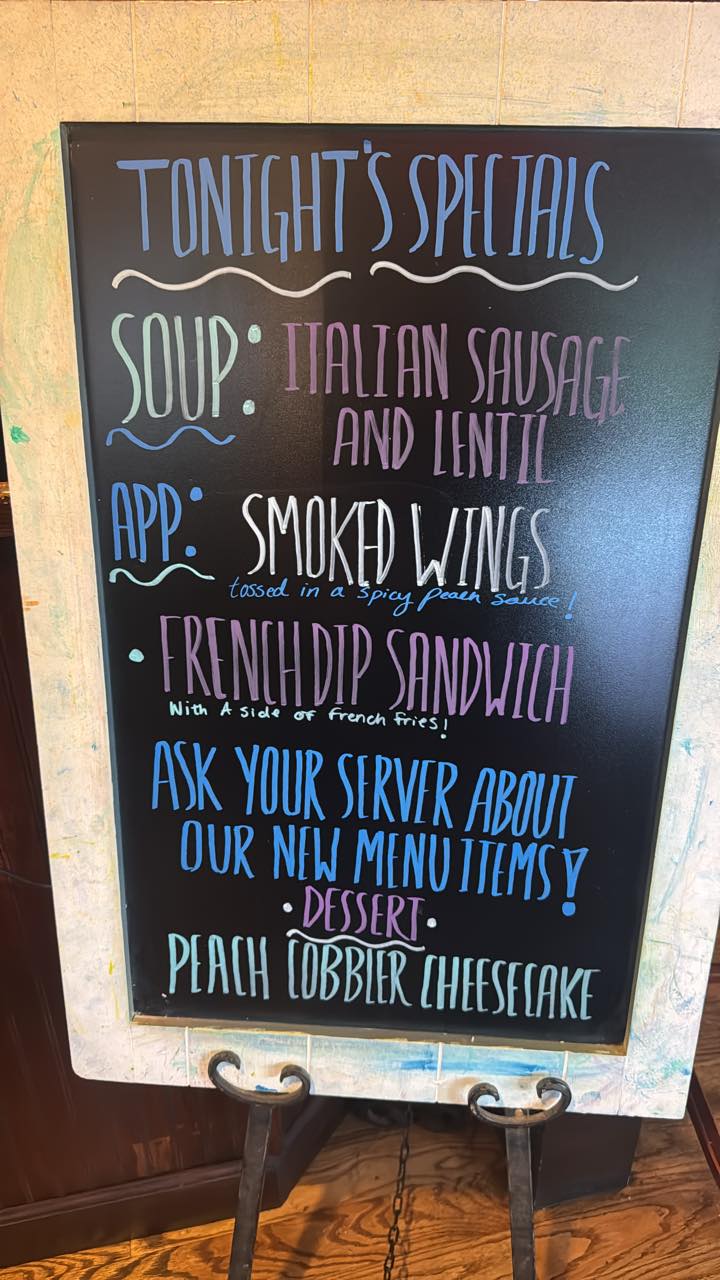 TONIGHT'S SPECIALS
SOUP: ITALIAN SAUSAGE
AND LENTIL
APP: SMOKED WINGS
tossed in a spicy peach sauce!
• FRENCH DIP SANDWICH
With A side of French fries!
ASK YOUR SERVER ABOUT
OUR NEW MENU ITEMS!
• DESSERT •
PEACH COBBLER CHEESECAKE